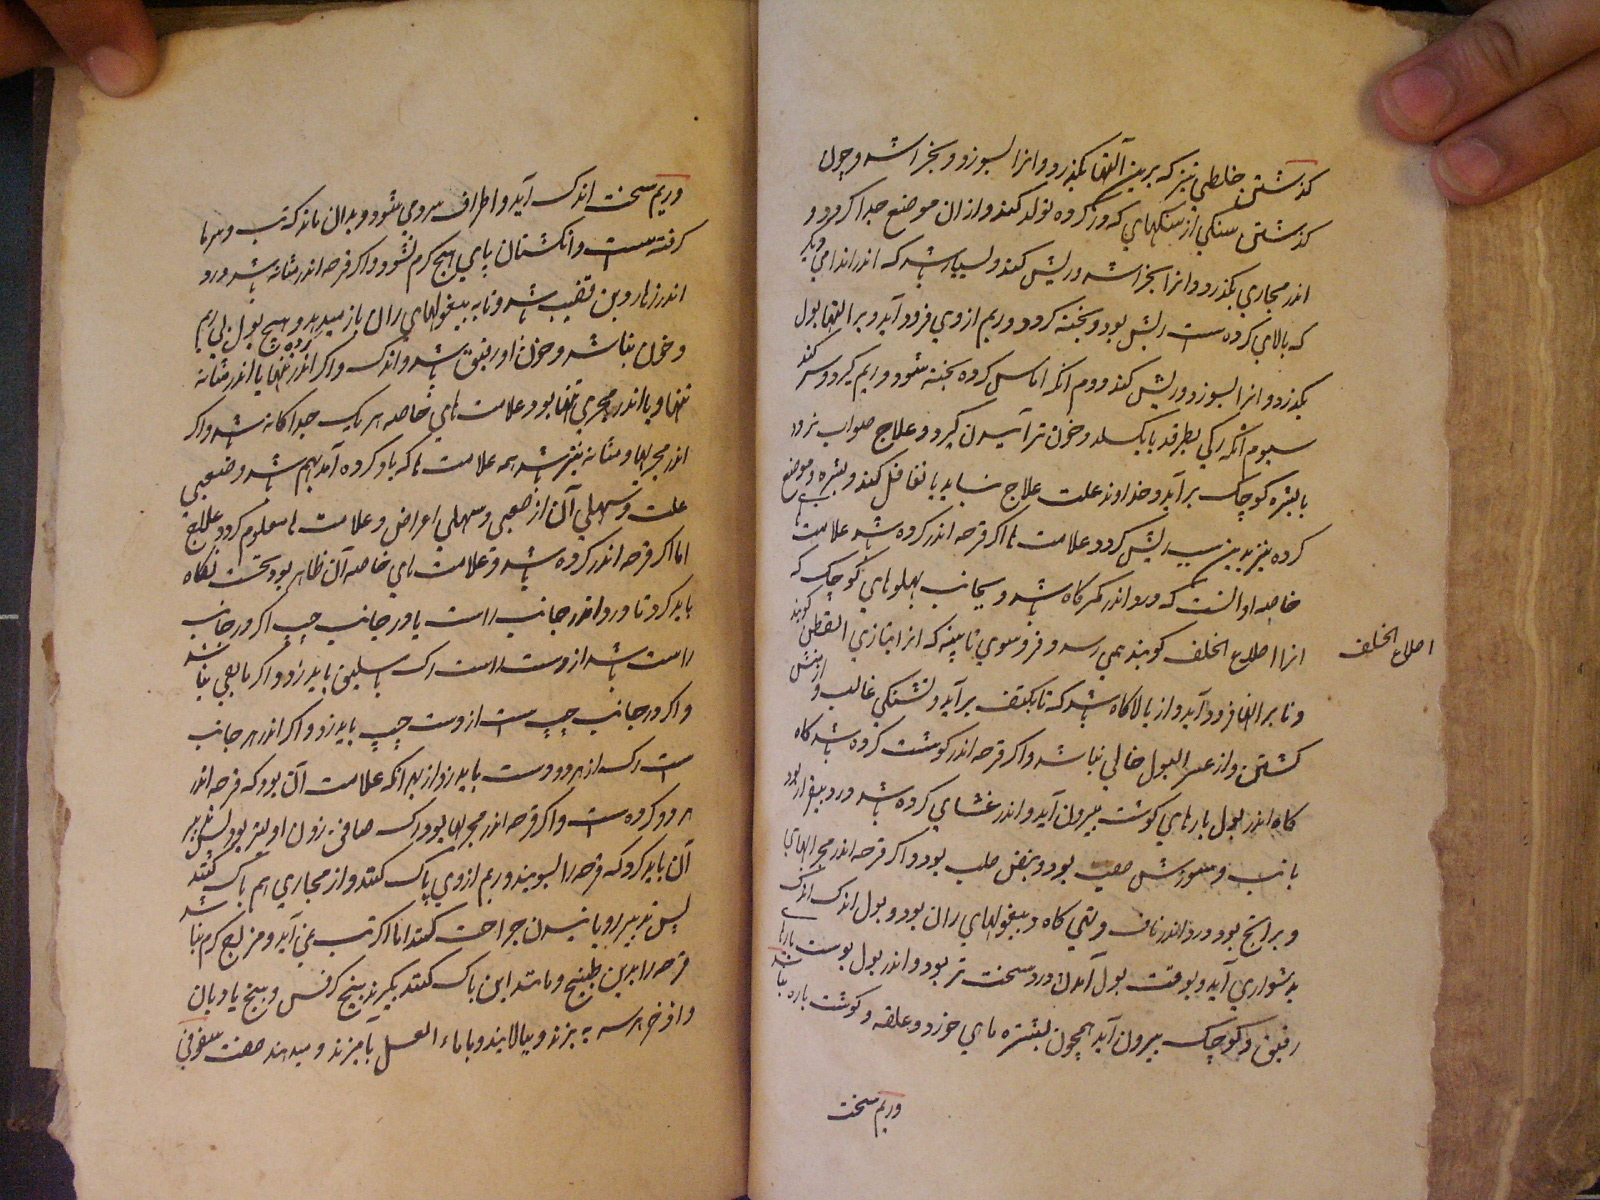 گذشتن خلطی تیز که برین آلتها بگذرد و انرا بسوزد و بخراشد و چون
گذشتن سنگی از سنگهای که در گرده تولد کند و از ان موضع جدا کردد و
اندر مجاری بگذرد و انرا بخراشد و ریش کند و بسیار باشد که اندر اندامی دیگر
که بالای کرده است ریش بود و پخته کردد و ریم از وی فرود آید و بر آلتها بول
بگذرد و انرا بسوزد و ریش کند دوم آنکه اماس کرده پخته شود و ریم کیرد و سر کند
سیوم آنکه رکی بطرقد یا بکسلد و خون تراسیدن کیرد و علاج صواب نرود
یا بثره کوچک برآید و خداوند علت علاج نیابد یا تغافل کند و بثره و موضع
کرده نیز بدین سبب ریش کردد علامت ها اکر قرحه اندر کرده باشد علامت هاء
خاصه او انست که درد اندر کمرکاه باشد و بجانب پهلوهای کوچک که
انرا اضلاع الخلف کویند همی رسد و فرو سوی تا پیغنه که انرا بتازی القطن کویند
و تا بر انها فرود آید و از بالا کاه باشد که تا بکتف برآید و تشنکی غالب و از بنش
کشتن و از عسر البول خالی نباشد و اکر قرحه اندر کوشت کرده باشد کاه
کاه اندر بول پارهای کوشت بیرون آید و اندر غشای کرده باشد درد بیقرار بود
با تب و سوزش صعب بود و نبض صلب بود و اکر قرحه اندر مجراهای
و برابخ بود درد اندر ناف و تهی کاه و بیغولهای ران بود و بول اندک اندک
بدشواری آید و بوقت بول آمدن درد سخت تر بود و اندر بول پوست پارهاء
رقیق و کوچک بیرون آید همچون پشیزه ماهی خرد و علقه و کوشت پاره نباشد
اضلاع الخلف
و ریم سخت
و ریم سخت اندک آید و اطراف سرد می شود و بدان ماند که تب و سرما
کرفته است و انکشتان پای هیچ کرم نشود و اکر قرحه اندر مثانه باشد درد
اندر زهار و بن قضیب باشد و تا به بیغولهای ران باز میدهد و هیچ بول بی ریم
و خون نباشد و خون او رقیق باشد و اندک و اکر اندر کرده تنها یا اندر مثانه
تنها و یا اندر مجری تنها بود علامت های خاصه هر یک جداکانه باشد و اکر
اندر مجراها و مثانه نیز باشد همه علامت ها که یاد کرده آمد بهم باشد و صعبی
علت و سهلی آن از صعبی و سهلی اعراض و علامت ها معلوم کردد علاج
اما اکر قرحه اندر کرده باشد و علامت های خاصه آن ظاهر بود نخست نکاه
باید کرد تا درد اندر جانب راست یا در جانب چپ اکر در جانب
راست باشد از دست راست رک باسلیق باید زد و اکر مانعی نباشد
و اکر در جانب چپ است از دست چپ باید زد و اکر اندر هر جانب
است رک از هر دو دست باید زد از بهر انکه علامت آن بود که قرحه اندر
هر دو کرده است و اکر قرحه اندر مجراها بود رک صافن زدن اولیتر بود پس تدبیر
آن باید کرد که قرحه را بشویند و ریم از وی پاک کنند و از مجاری هم پاک کنند
پس تدبیر رویانیدن جراحت کنند اما اکر تب نمی آید و مزاج کرم نباشد
قرحه را بدین طبیخ و مانند این پاک کنند بکیرند بیخ کرفس و بیخ بادیان
و اذخر هر سه بپزند و بپالایند و با ماء العسل بیامیزند و میدهند صفت سفوفی